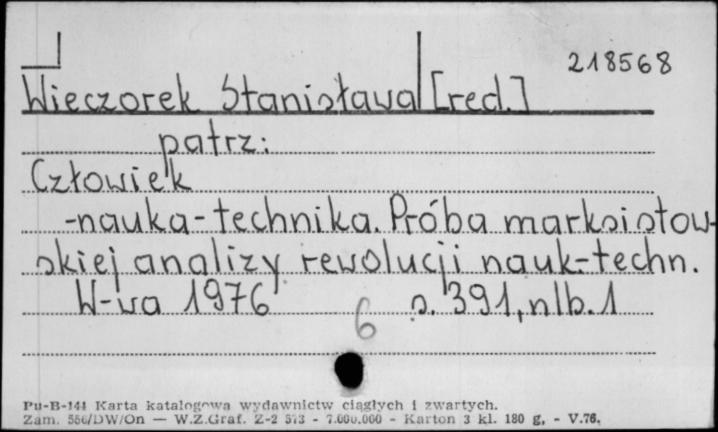 218568
Wieczorek Stanisława [red.]
patrz:
Człowiek
-nauka-technika. Próba marksistow-
skiej analizy rewolucji nauk.-techn.
W-wa 1976 s. 391, nlb. 1
6
Pu-B-144 Karta katalogowa wydawnictw ciągłych i zwartych.
Zam. 556/DW/On — W.Z.Graf. Z-2 573 - 7.000.000 - Karton 3 kl. 180 g. - V.76.